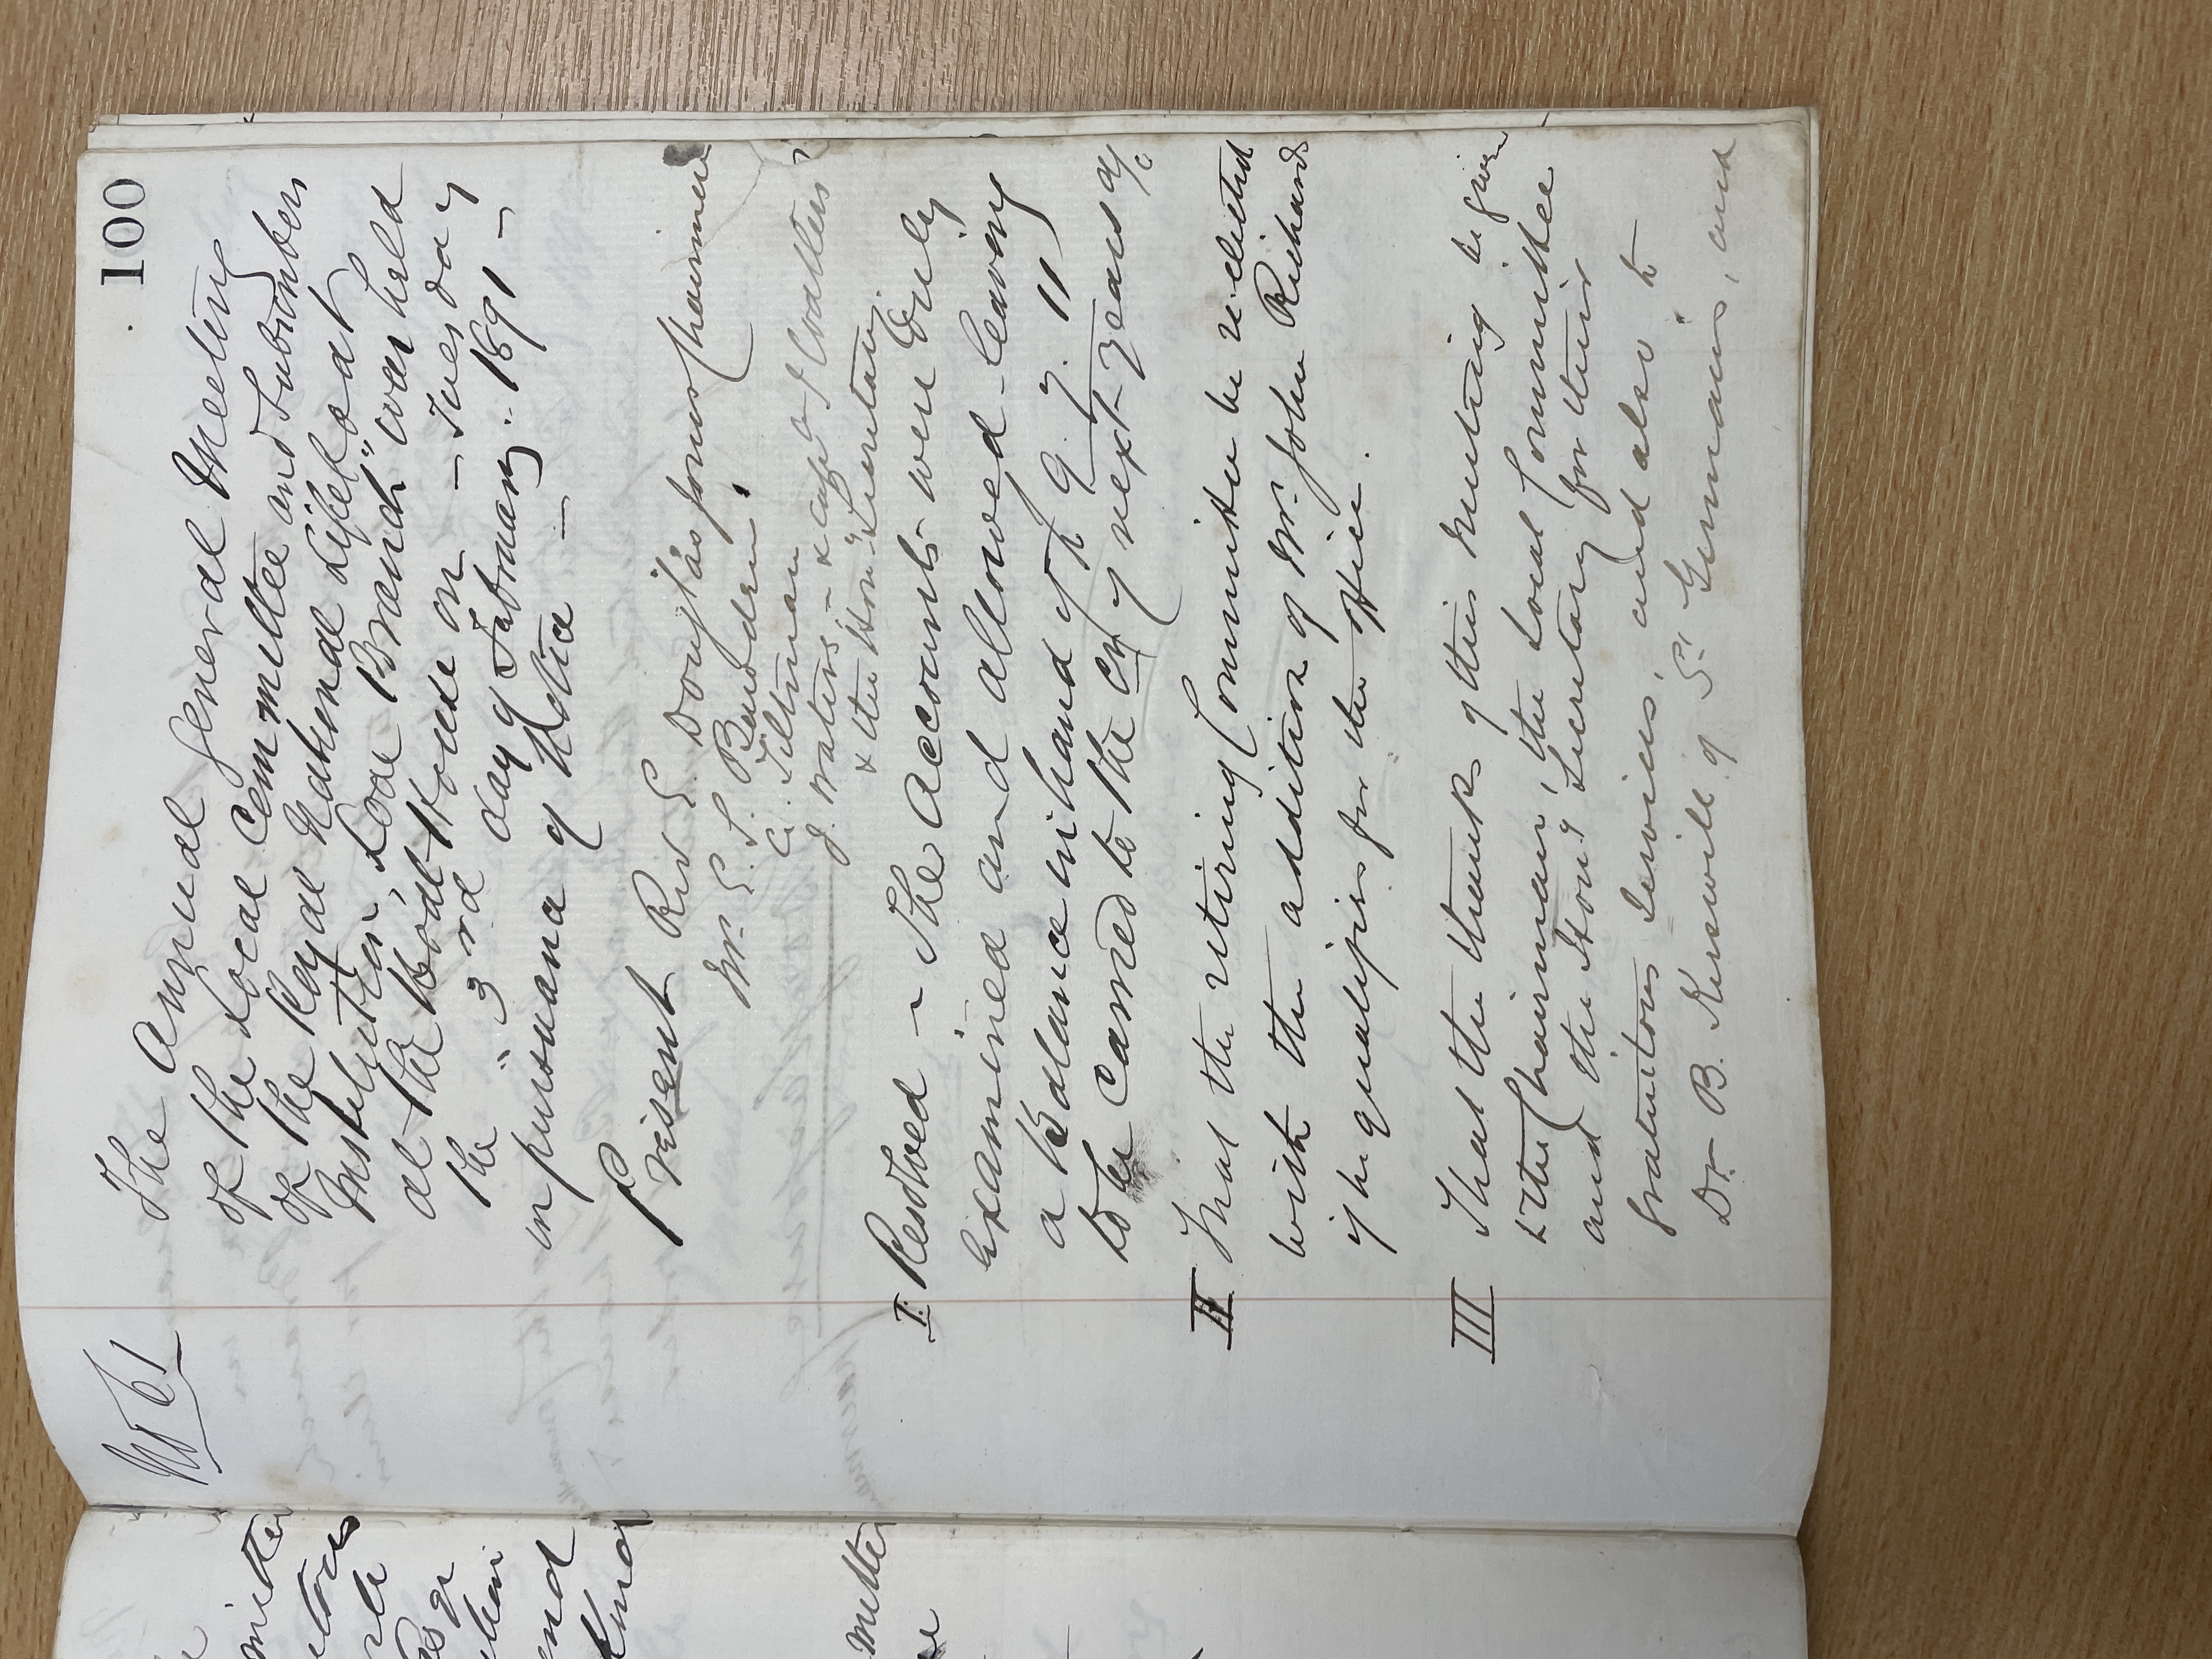 100
No 61
The Annual General Meeting
of the Local Committee and Subscribers
of the Royal National Lifeboat
Institution, "Looe Branch" was held
at the Boat House on – Tuesday
the "3rd day of February.. 1891 –
in pursuance of Notice –
Present Rev E. Douglas Jones Chairman
Mr. E. S. Bowden
C. Tiltman
J. Waters – & Capt
& the Hony Secretary
I. Resolved – The Accounts were duly
examined and allowed – leaving
a Balance in hand of £ 9. 9. 11
to be carried to the Cr. of next years a/c
II That the retiring Committee be re-elected
with the addition of Mr. John Richards
if he qualifies for the office.
III That the thanks of this meeting be given
to the Chairman, the Local Committee
and the Hony Secretary for their
gratuitous services, and also to
Dr B. Kerswill of St Germains, and
mittee
and
mittee